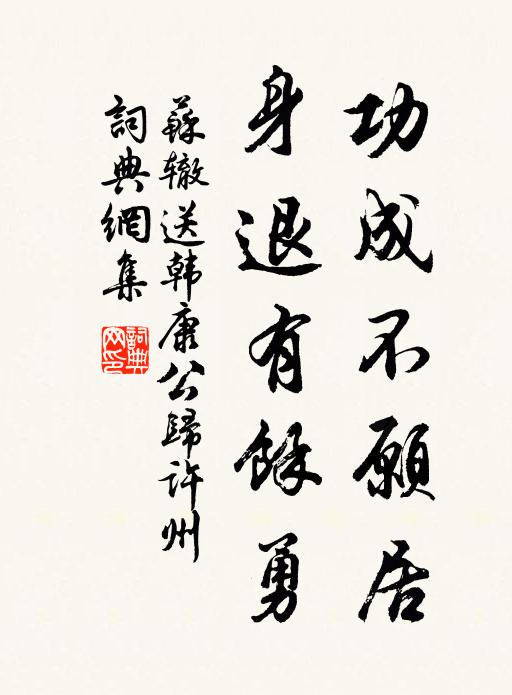 功成不願居
身退有餘勇
蘇辙送韩康公歸许州
詞典網集
詞典网印